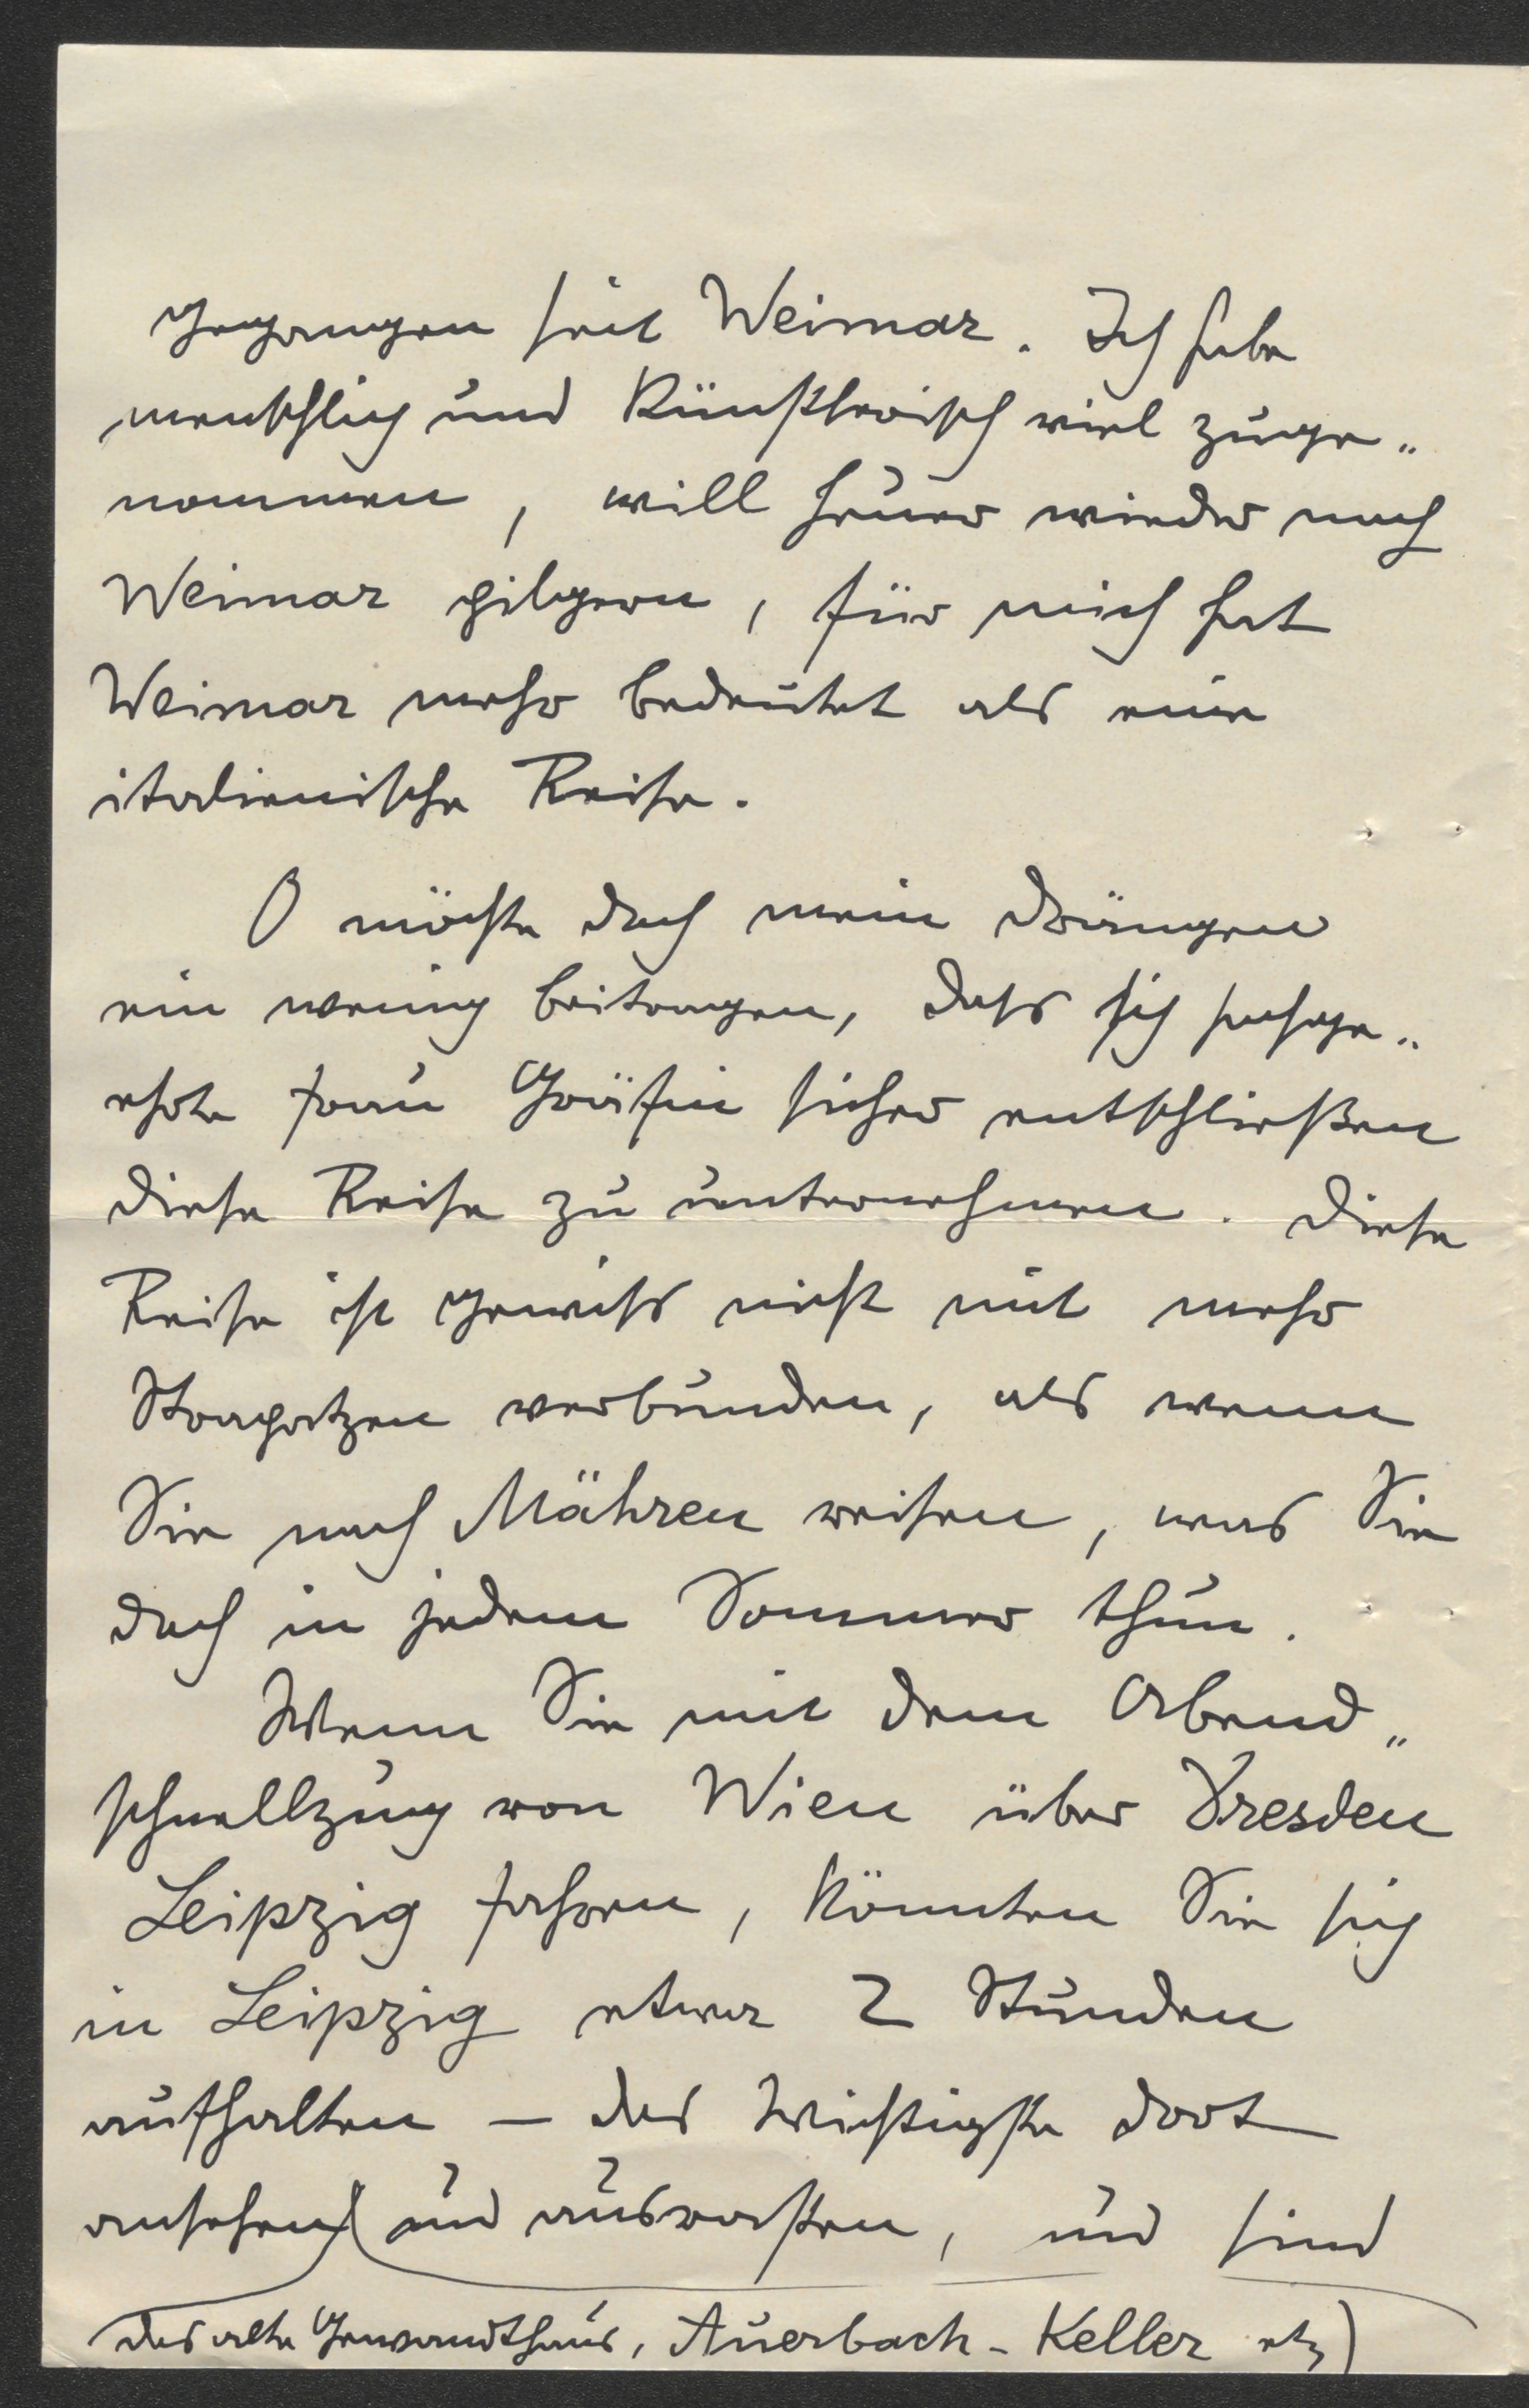 gegangen seit Weimar. Ich habe
menschlich und künstlerisch viel zuge„
nommen, will heuer wieder nach
Weimar pilgern, für mich hat
Weimar mehr bedeutet als eine
italienische Reise.
O möchte doch mein Drängen
ein wenig beitragen, dass sich hochge„
ehrte Frau Gräfin sicher entschließen
diese Reise zu unternehmen. Diese
Reise ist gewiss nicht mit mehr
Strapatzen verbunden, als wenn
Sie nach Mähren reisen, was Sie
doch in jedem Sommer thun.
Wenn Sie mit dem Abend„
schnellzug von Wien über Dresden
Leipzig fahren, könnten Sie sich
in Leipzig etwa 2 Stunden
aufhalten – das Wichtigste dort
ansehen und ausrasten, und sind
das alte Gewandthaus, Auerbach-Keller etz)